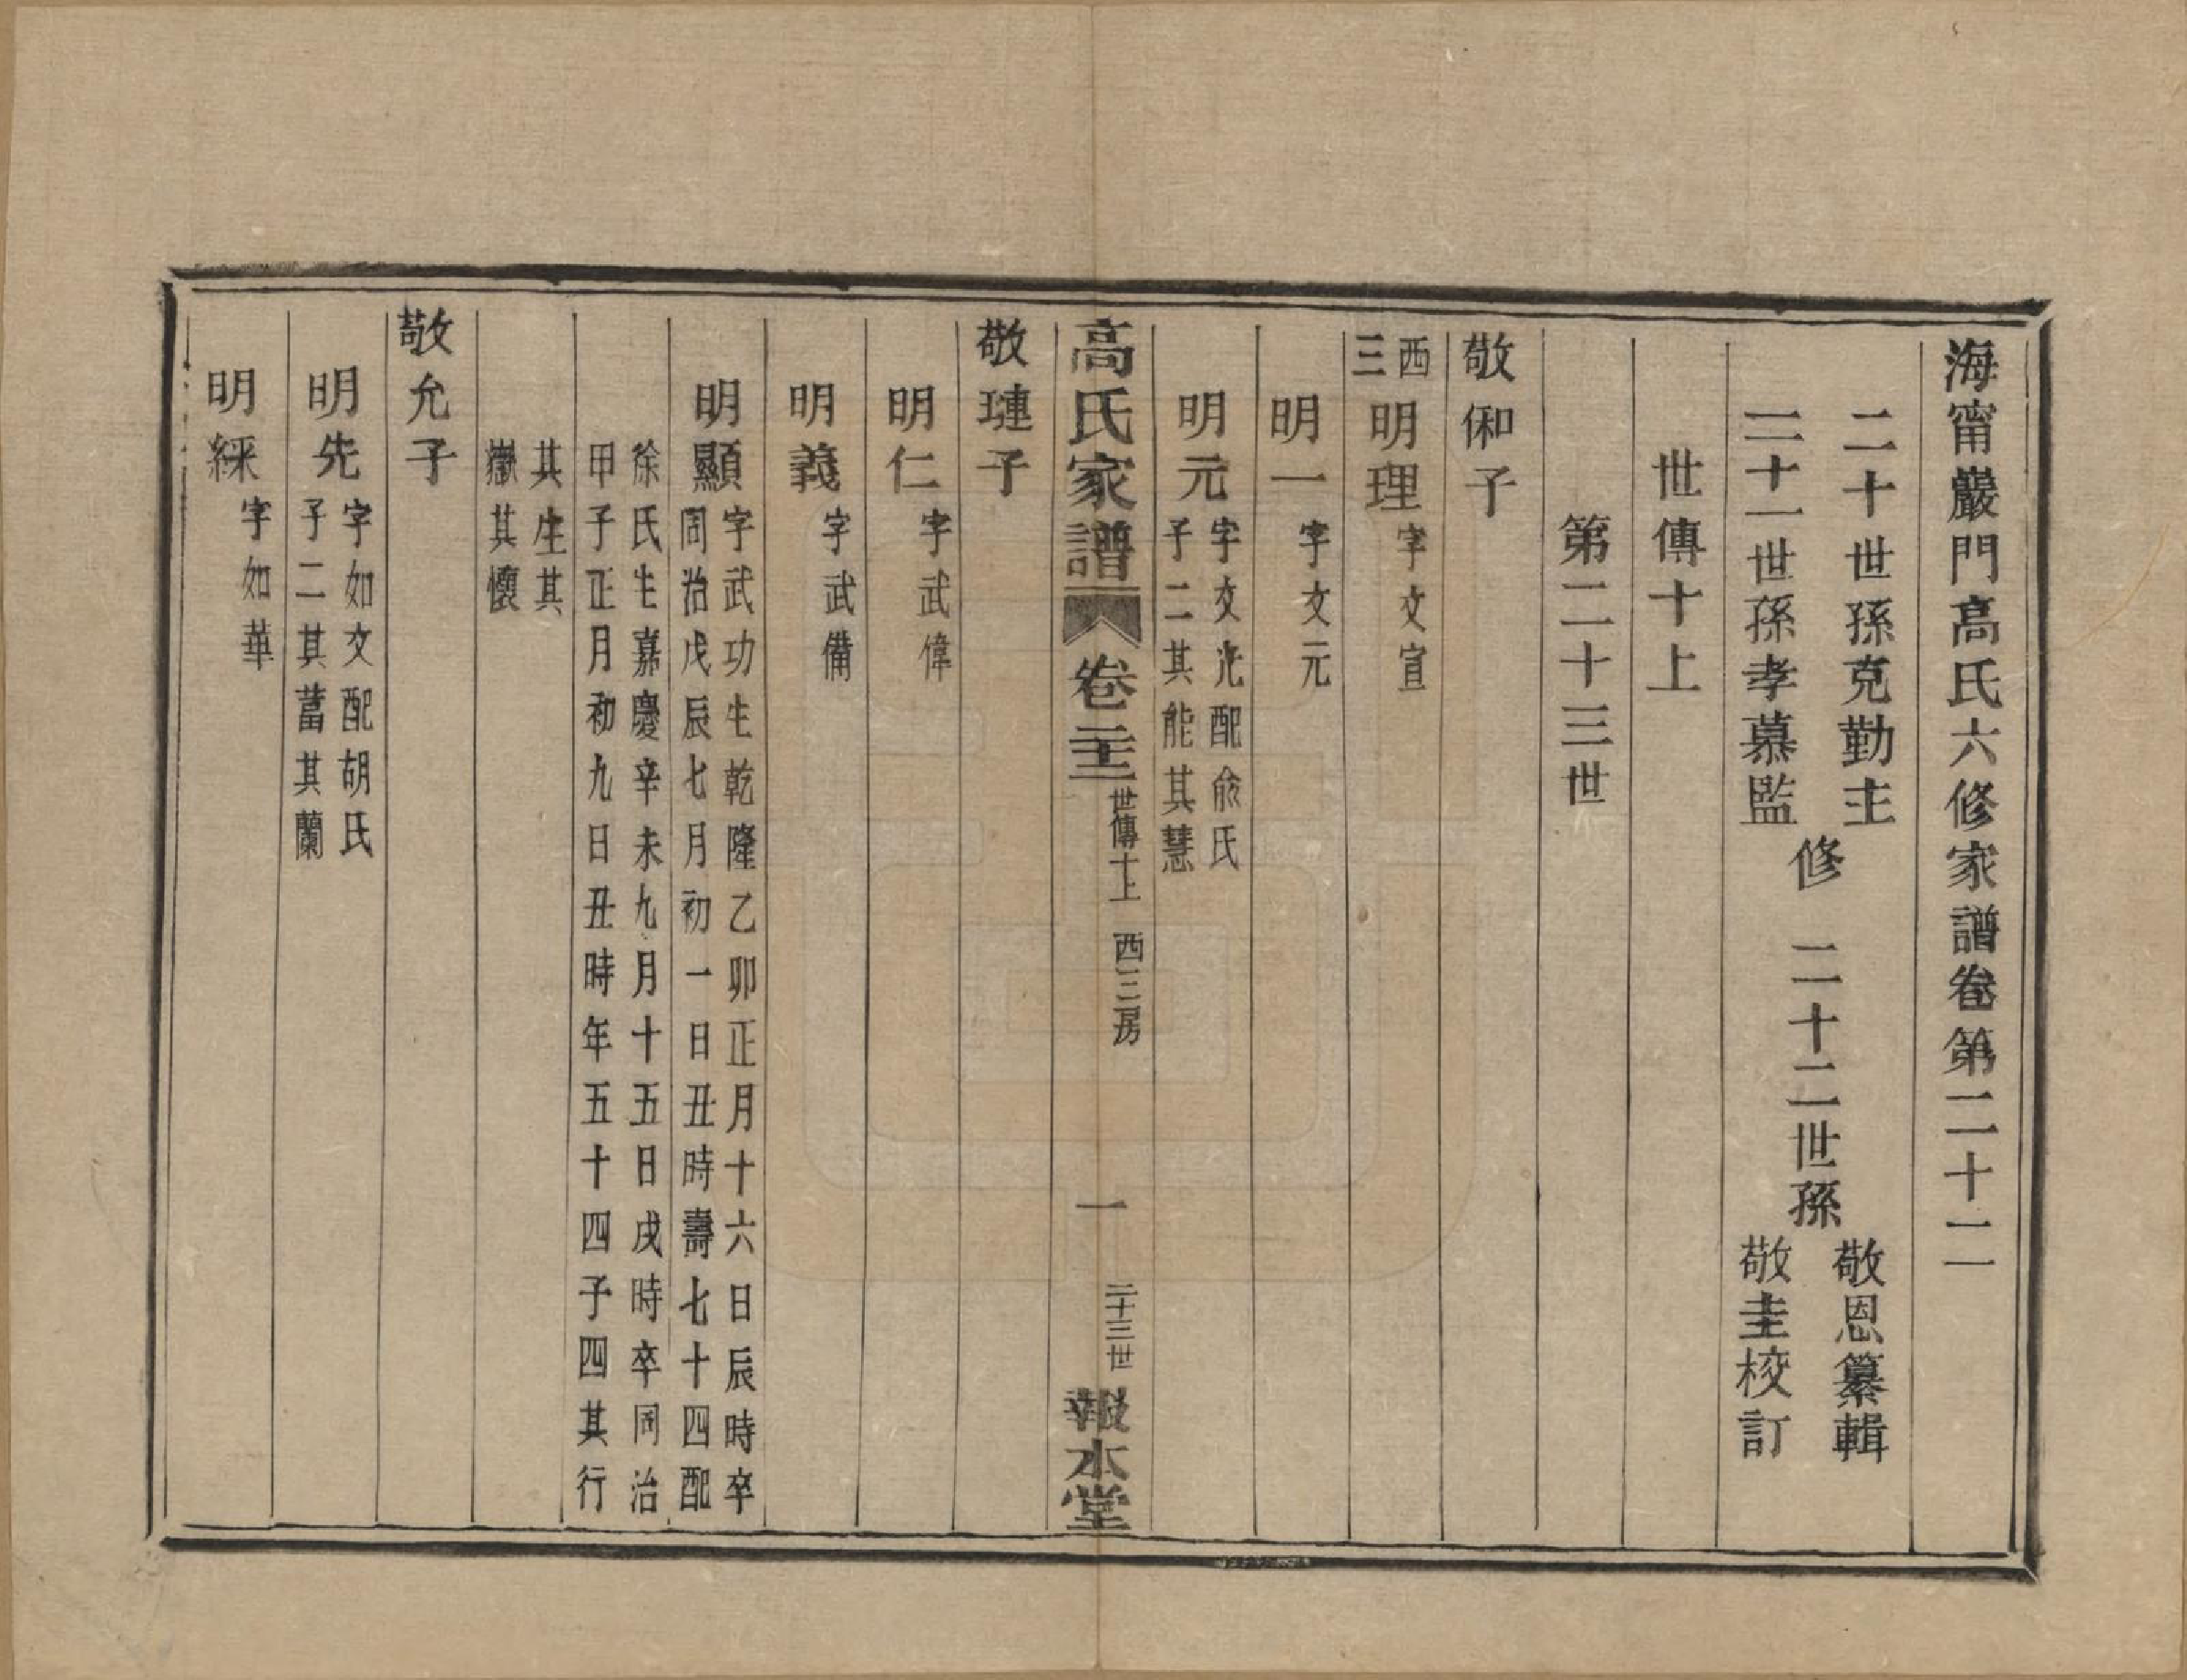 海甯巖門高氏六修家譜卷第二十二
二十世孫克勤主
二十一世孫孝慕監
修　二十二世孫
敬恩纂輯
敬圭校訂
世傳十上
第二十三世
敬和子
西
三
明理
字文宣
明一
字文元
明元
字文光配俞氏
子二其能其慧
高氏家譜
卷二十二
世傳十上　西三房
一
二十三世
報本堂
敬璉子
明仁
字武偉
明義
字武備
明顯
字武功生乾隆乙卯正月十六日辰時卒
同治戊辰七月初一日丑時壽七十四配
徐氏生嘉慶辛未九月十五日戌時卒同治
甲子正月初九日丑時年五十四子四其行
其生其
嶽其懷
敬允子
明先
字如文配胡氏
子二其蓄其蘭
明綵
字如華